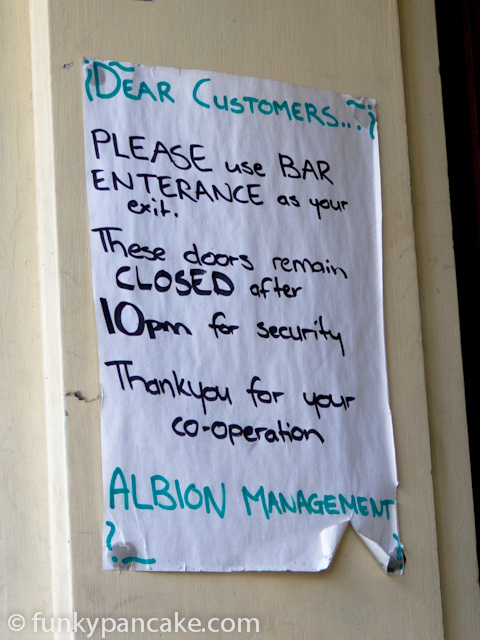 DEAR CUSTOMERS...
PLEASE use BAR
ENTERANCE as your
exit.
These doors remain
CLOSED after
10pm for security
Thankyou for your
co-operation
ALBION MANAGEMENT
© funkypancake.com